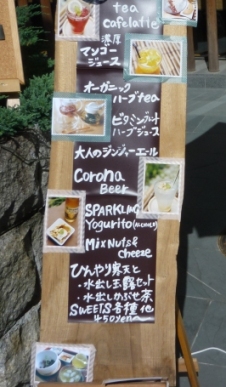 tea
cafelatte
濃厚
マンゴー
ジュース
オーガニック
ハーブtea
ビタミンガット
ハーブジュース
大人のジンジャーエール
Corona
Beer
SPARKLING
Yogurito (ALCOHOL)
Mix Nuts &
cheeze
ひんやり寒天と
・水出し玉露セット
・水出しかぶせ茶
SWEETS各種 他
450yen～